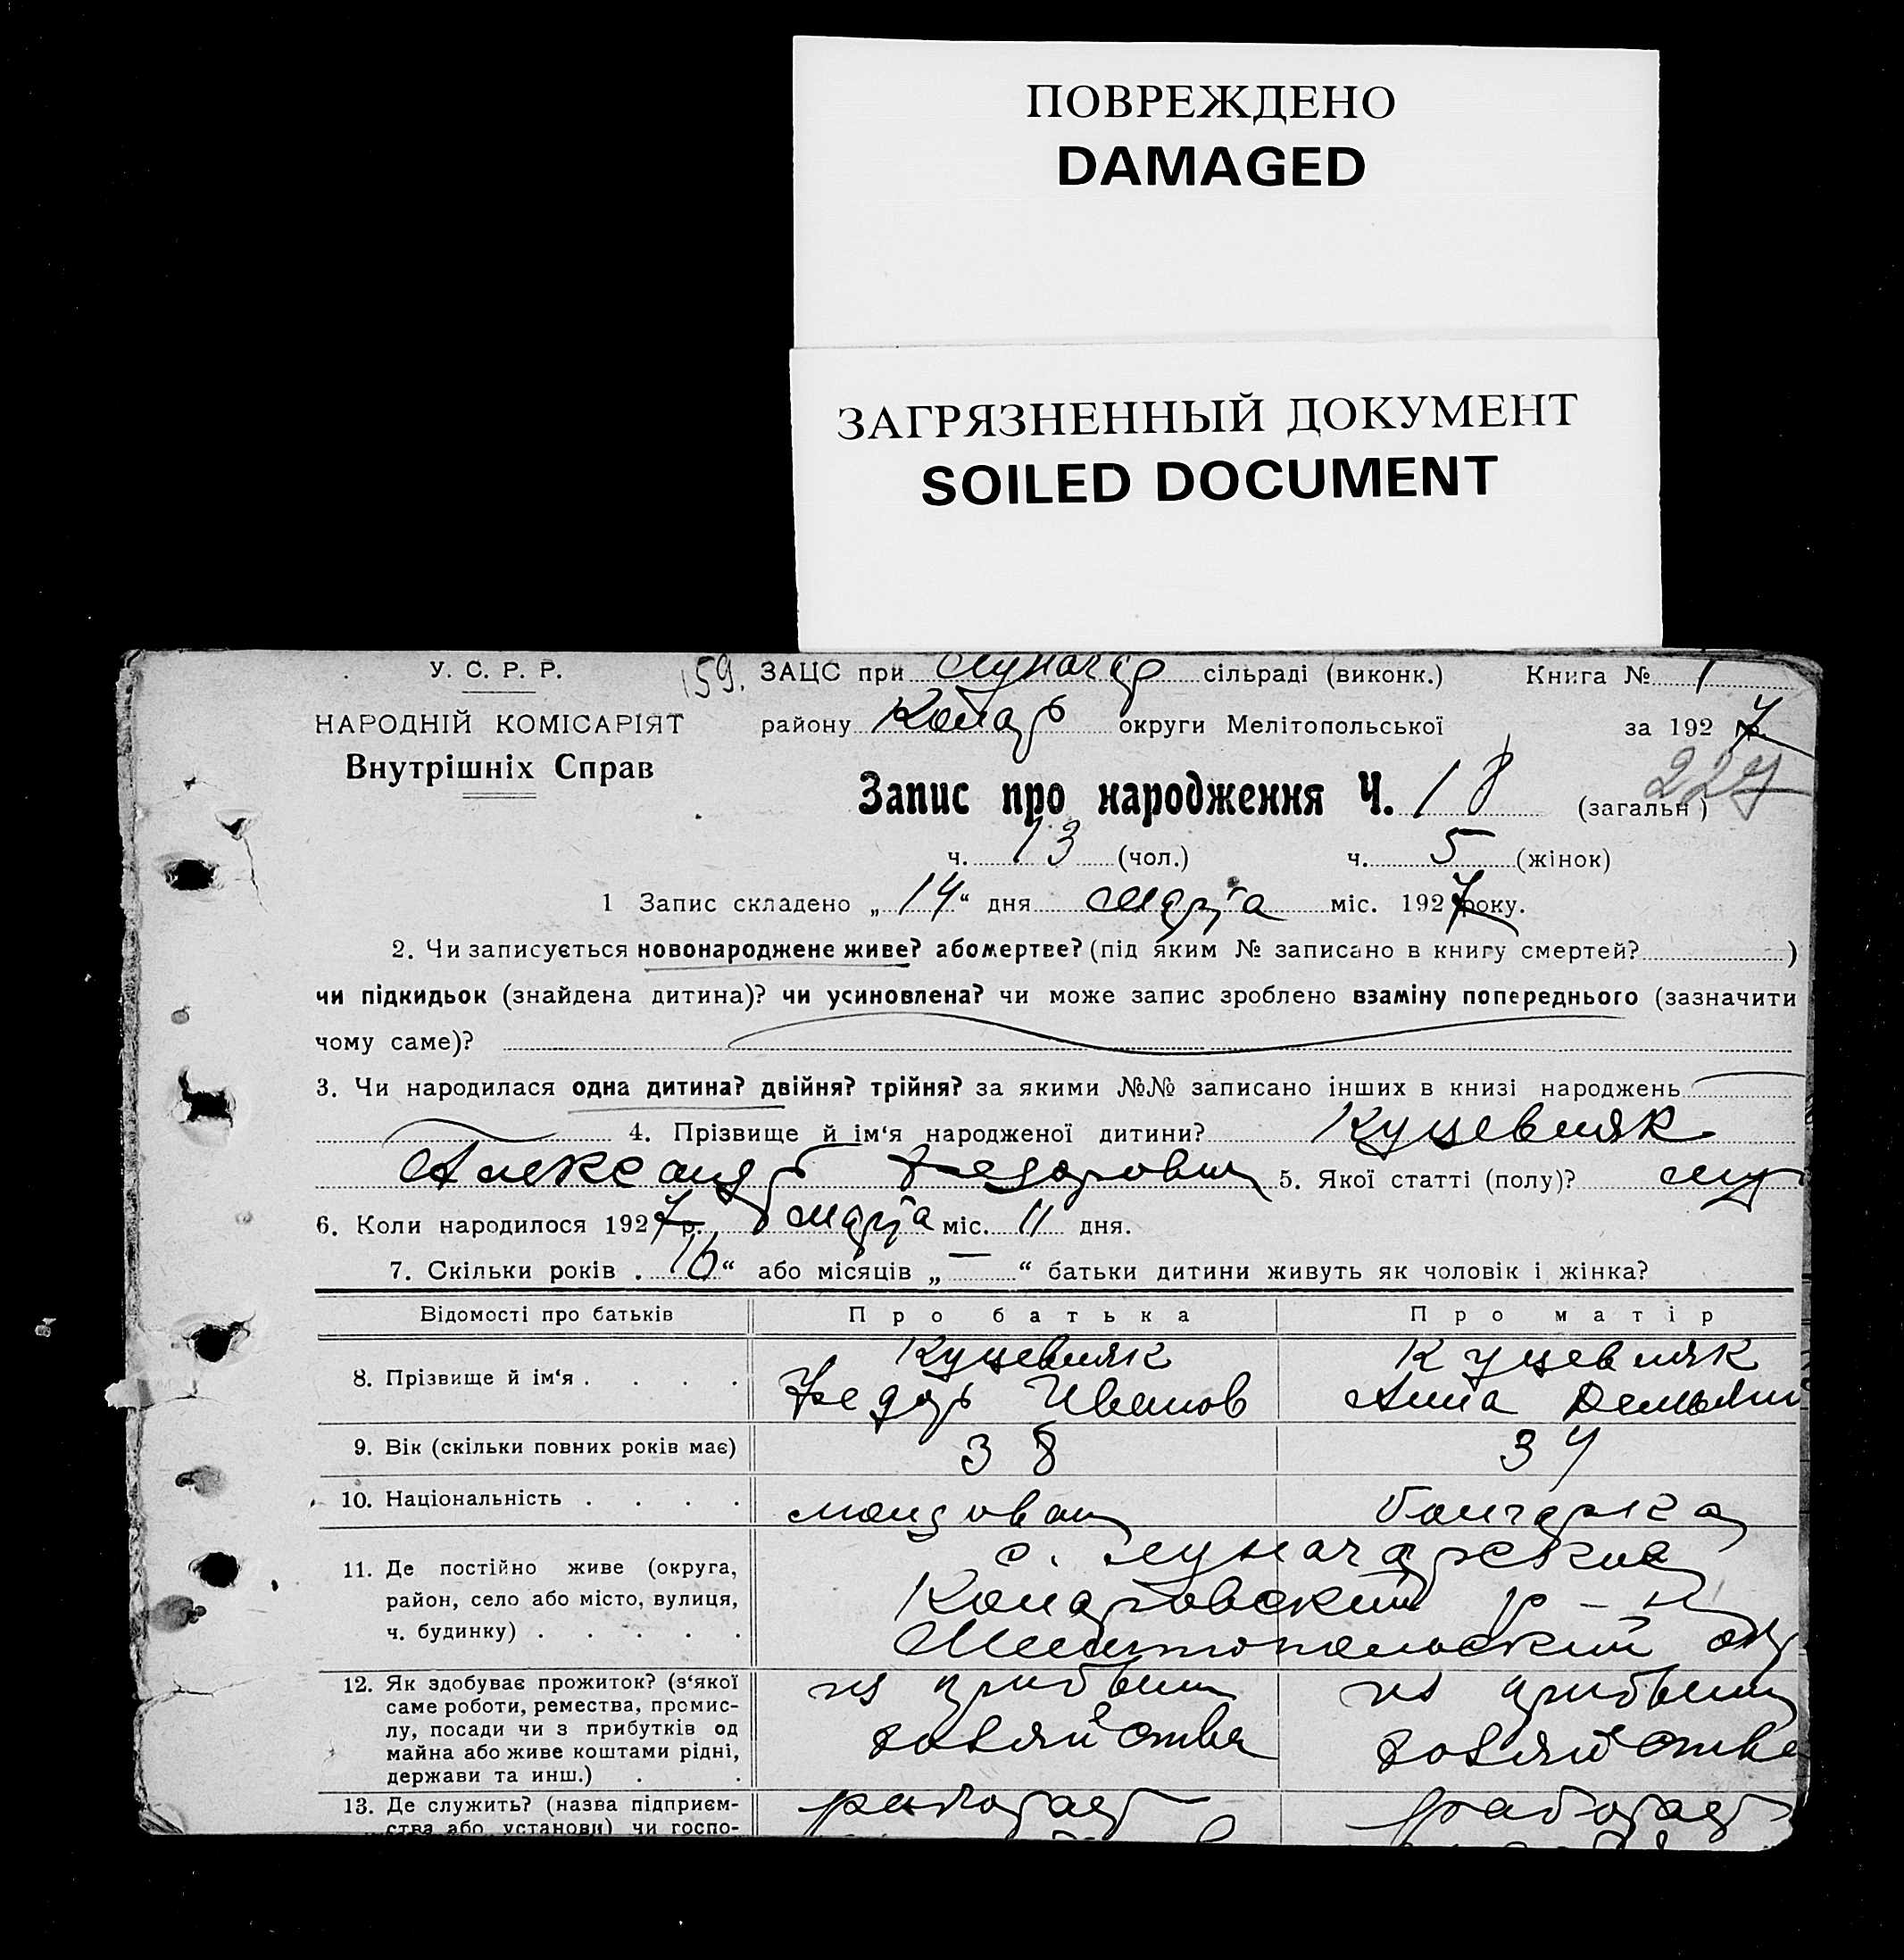 ПОВРЕЖДЕНО
DAMAGED
ЗАГРЯЗНЕННЫЙ ДОКУМЕНТ
SOILED DOCUMENT
У. С. Р. Р.
НАРОДНІЙ КОМІСАРІЯТ
Внутрішніх Справ
159. ЗАЦС при Луначар сільраді (виконк.) Книга № 1
району Комар округи Мелітопольської за 1927 р.
227
Запис про народження Ч. 18 (загальн)
ч. 13 (чол.) ч. 5 (жінок)
1 Запис складено „14“ дня марта міс. 1927 року.
2. Чи записується новонароджене живе? або мертве? (під яким № записано в книгу смертей? )
чи підкидьок (знайдена дитина)? чи усиновлена? чи може запис зроблено взаміну попереднього (зазначити
чому саме)?
3. Чи народилася одна дитина? двійня? трійня? за якими №№ записано інших в книзі народжень
4. Прізвище й ім‘я народженої дитини? Куцевляк
Александр Федорович 5. Якої статті (полу)? муж
6. Коли народилося 1927 р. марта міс. 11 дня.
7. Скільки років „16“ або місяців „—“ батьки дитини живуть як чоловік і жінка?
Відомості про батьків Про батька Про матір
8. Прізвище й ім‘я . . . . Куцевляк Куцевляк
Федор Иванов Анна Демьян
9. Вік (скільки повних років має) 38 34
10. Національність . . . . молдован болгарка
11. Де постійно живе (округа, с. Луначарское
район, село або місто, вулиця, р-н
ч. будинку) . . . . . Мелитопольский окр
12. Як здобуває прожиток? (з‘якої из прибыли из прибыли
саме роботи, ремества, промис-
лу, посади чи з прибутків од хозяйства хозяйства
майна або живе коштами рідні,
держави та инш.) . .
13. Де служить? (назва підприєм- работает работает
ства або установи) чи госпо-